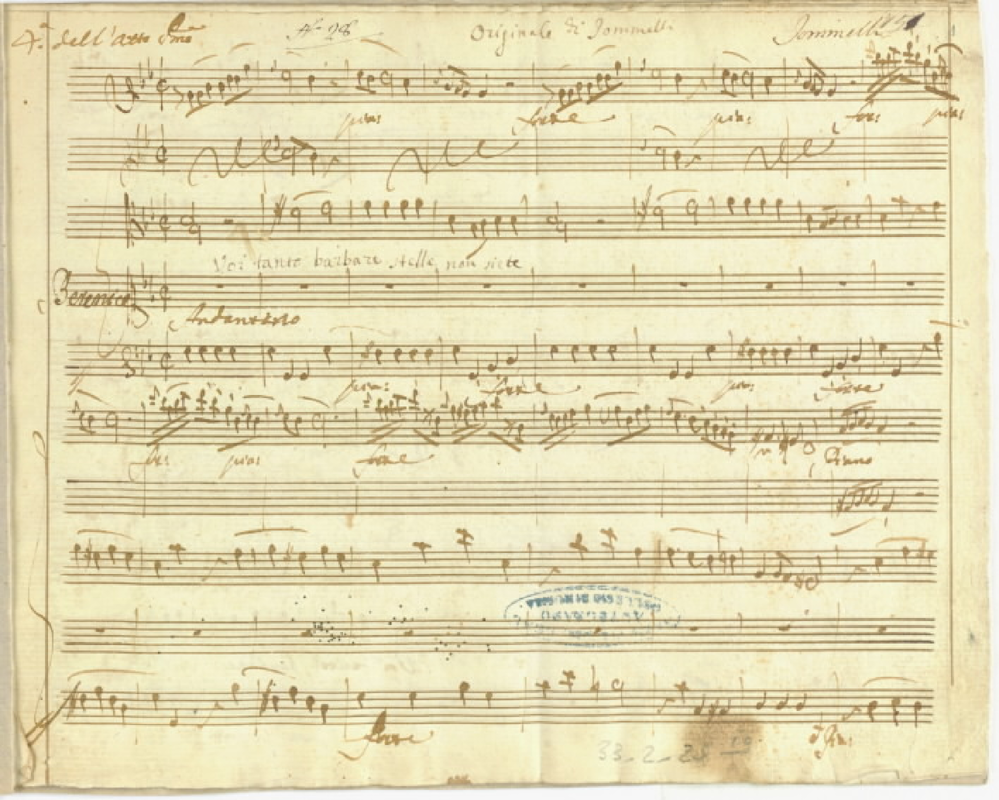 4.ª dell'atto Pmo Originale di Jommelli Jommelli
pia: forte pia: for: pia:
Voi tanto barbare stelle non siete
Berenice
Andantino
pia: forte pia: forte
for: pia: forte Piano
forte
33-2-23